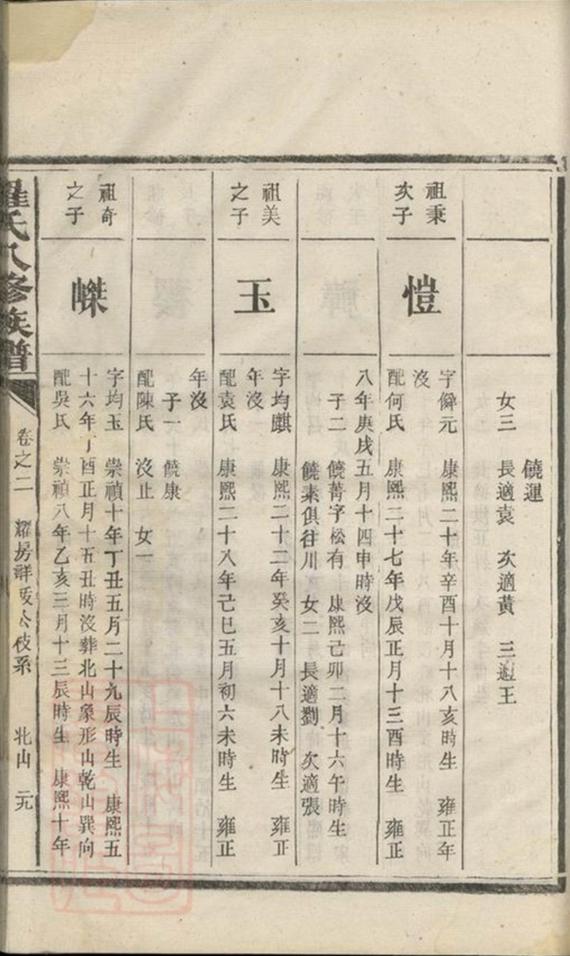 饒運
女三　長適袁　次適黃　三適王
祖秉
次子
愷
字僢元　康熙二十年辛酉十月十八亥時生　雍正年
沒
配何氏　康熙二十七年戊辰正月十三酉時生　雍正
八年庚戌五月十四申時沒
子二　饒菁字松有　康熙己卯二月十六午時生
饒素俱往川　女二　長適劉　次適張
祖美
之子
玉
字均麒　康熙二十二年癸亥十月十八未時生　雍正
年沒
配袁氏　康熙二十八年己巳五月初六未時生　雍正
年沒
子一　饒康
配陳氏　沒止　女一
祖奇
之子
嶙
字均玉　崇禎十年丁丑五月二十九辰時生　康熙五
十六年丁酉正月十五丑時沒葬北山象形山乾山巽向
配吳氏　崇禎八年乙亥三月十三辰時生　康熙十年
羅氏八修族譜　卷之二　耀房詳公伎系　北山　元